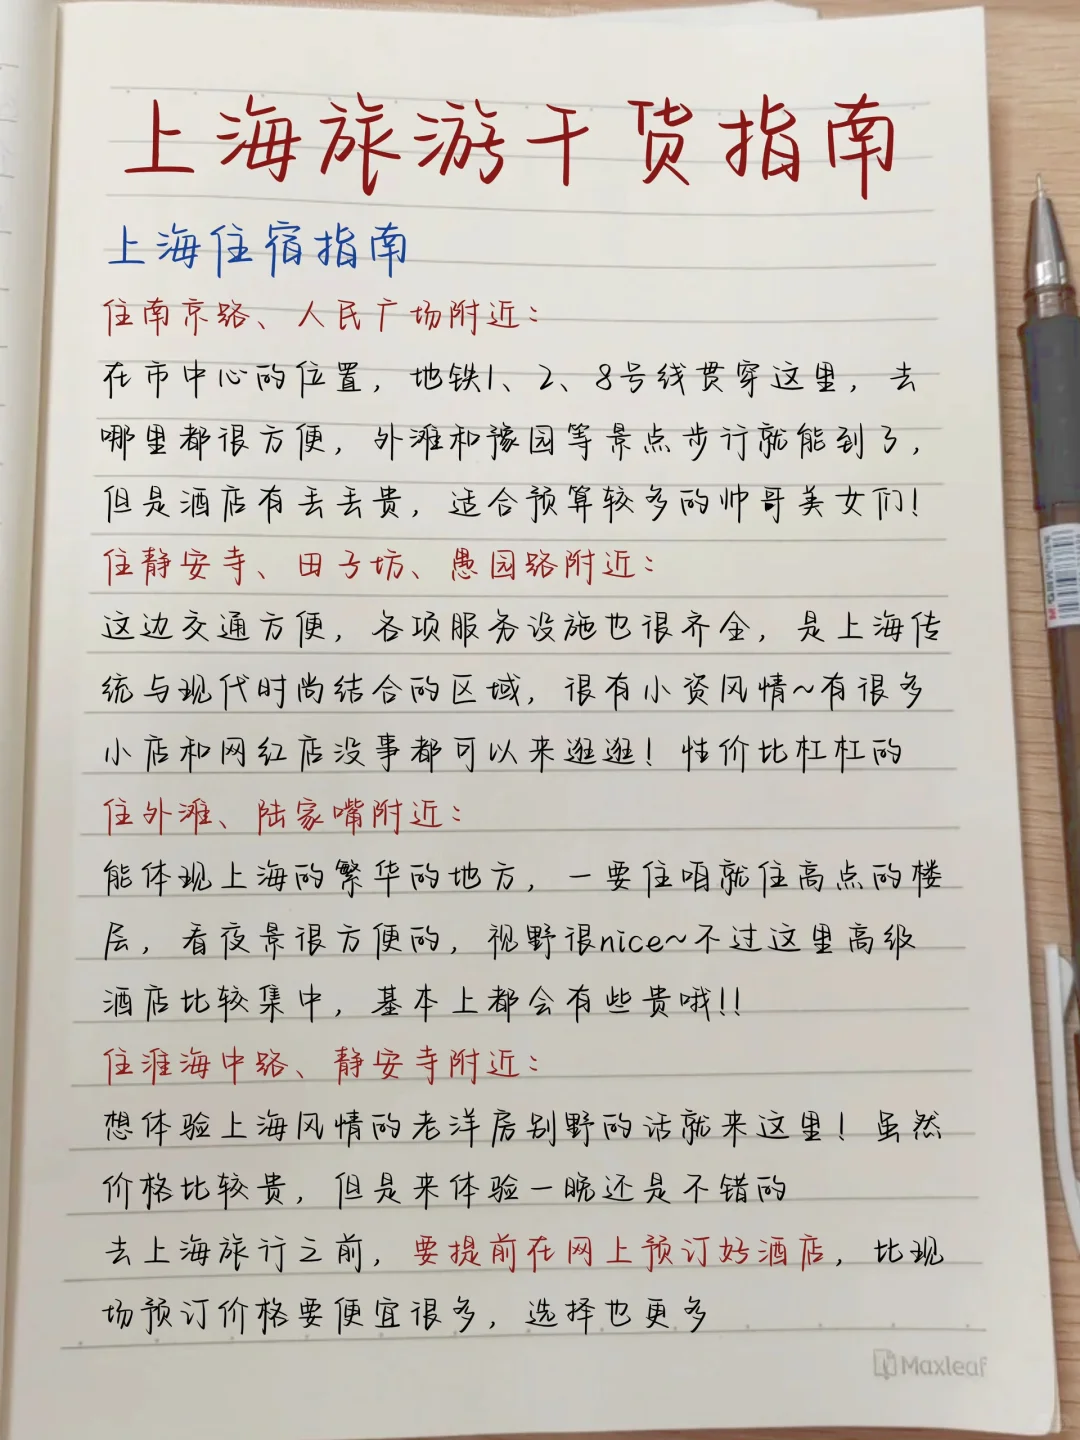 上海旅游干货指南
上海住宿指南
住南京路、人民广场附近：
在市中心的位置，地铁1、2、8号线贯穿这里，去
哪里都很方便，外滩和豫园等景点步行就能到了，
但是酒店有丢丢贵，适合预算较多的帅哥美女们！
住静安寺、田子坊、愚园路附近：
这边交通方便，各项服务设施也很齐全，是上海传
统与现代时尚结合的区域，很有小资风情~有很多
小店和网红店没事都可以来逛逛！性价比杠杠的
住外滩、陆家嘴附近：
能体现上海的繁华的地方，一要住咱就住高点的楼
层，看夜景很方便的，视野很nice~不过这里高级
酒店比较集中，基本上都会有些贵哦!!
住淮海中路、静安寺附近：
想体验上海风情的老洋房别野的话就来这里！虽然
价格比较贵，但是来体验一晚还是不错的
去上海旅行之前，要提前在网上预订好酒店，比现
场预订价格要便宜很多，选择也更多
Maxleaf